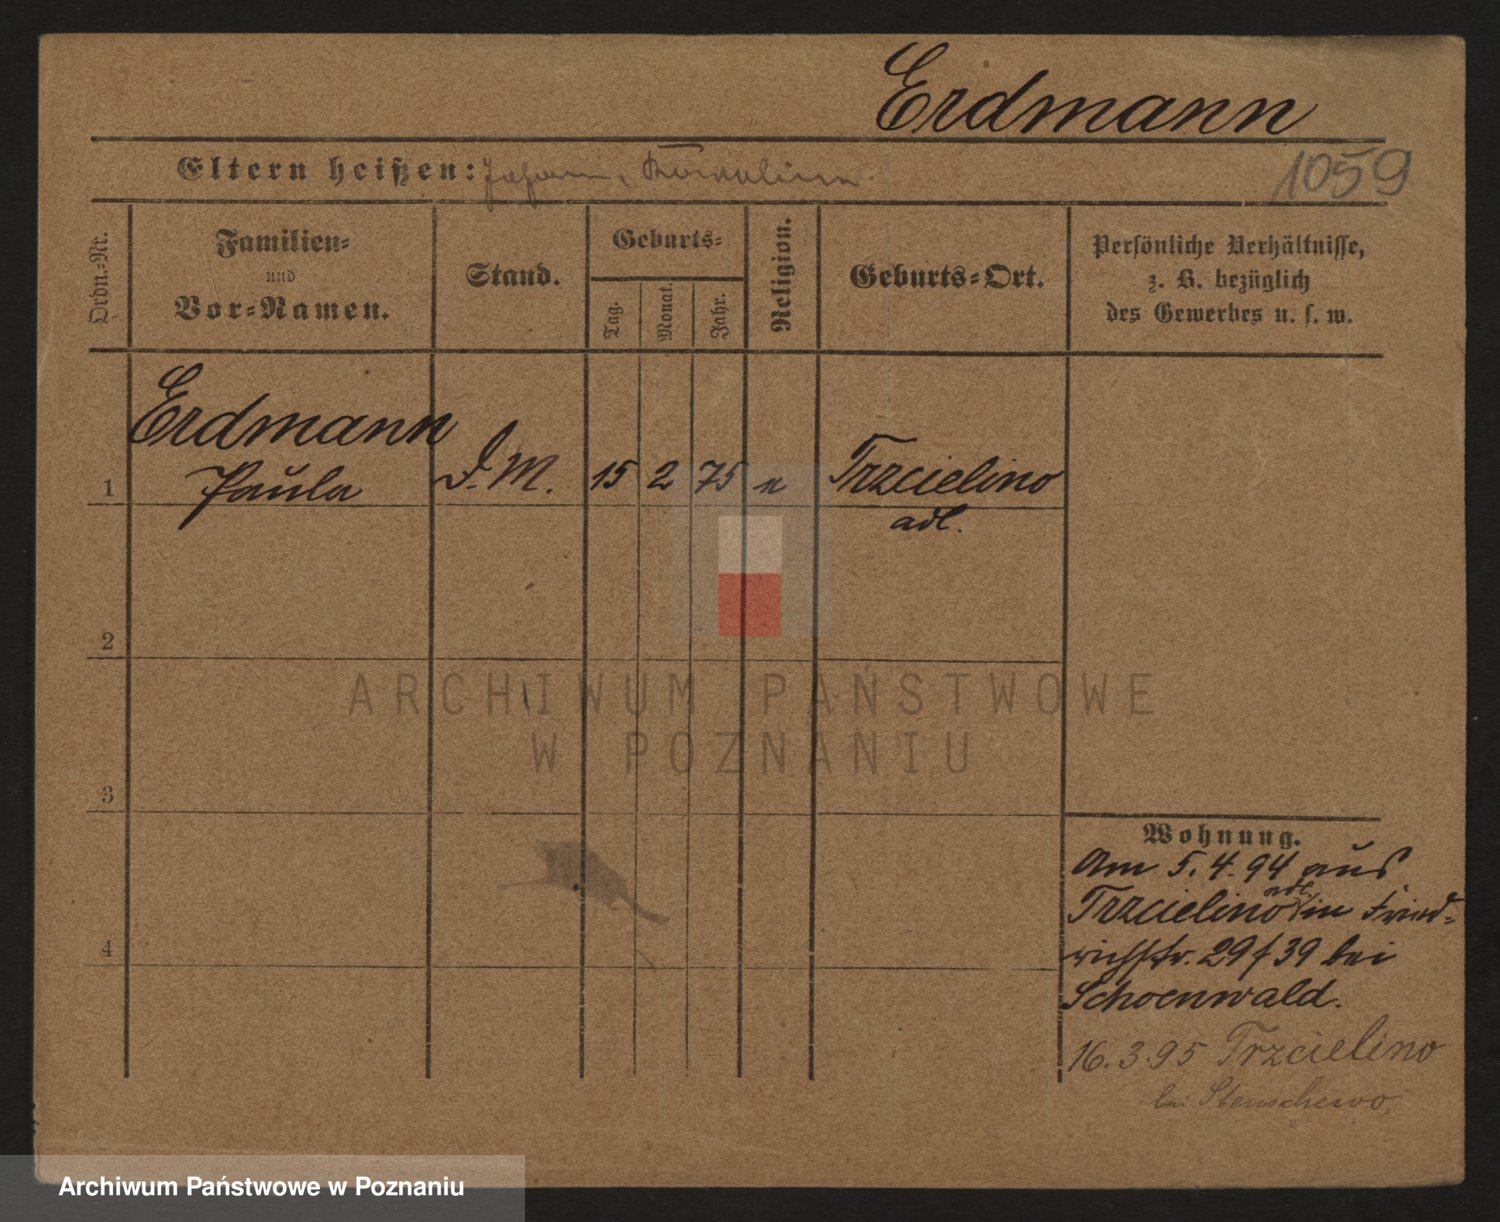 Erdmann
Eltern heißen: Johann,
1059
Ordn.-Nr.
Familien-
und
Vor-Namen.
Stand.
Geburts-
Tag.
Monat.
Jahr.
Religion.
Geburts-Ort.
Persönliche Verhältnisse,
z. B. bezüglich
des Gewerbes u. s. w.
Erdmann
1 Paula D. M. 15 2 75 Trzcielino
adl.
2
3
4
Wohnung.
Am 5.4.94 aus
Trzcielino adl. in Fried-
richstr. 29/39 bei
Schoenwald.
16.3.95 Trzcielino
bei Stenschewo
ARCHIWUM PAŃSTWOWE
W POZNANIU
Archiwum Państwowe w Poznaniu